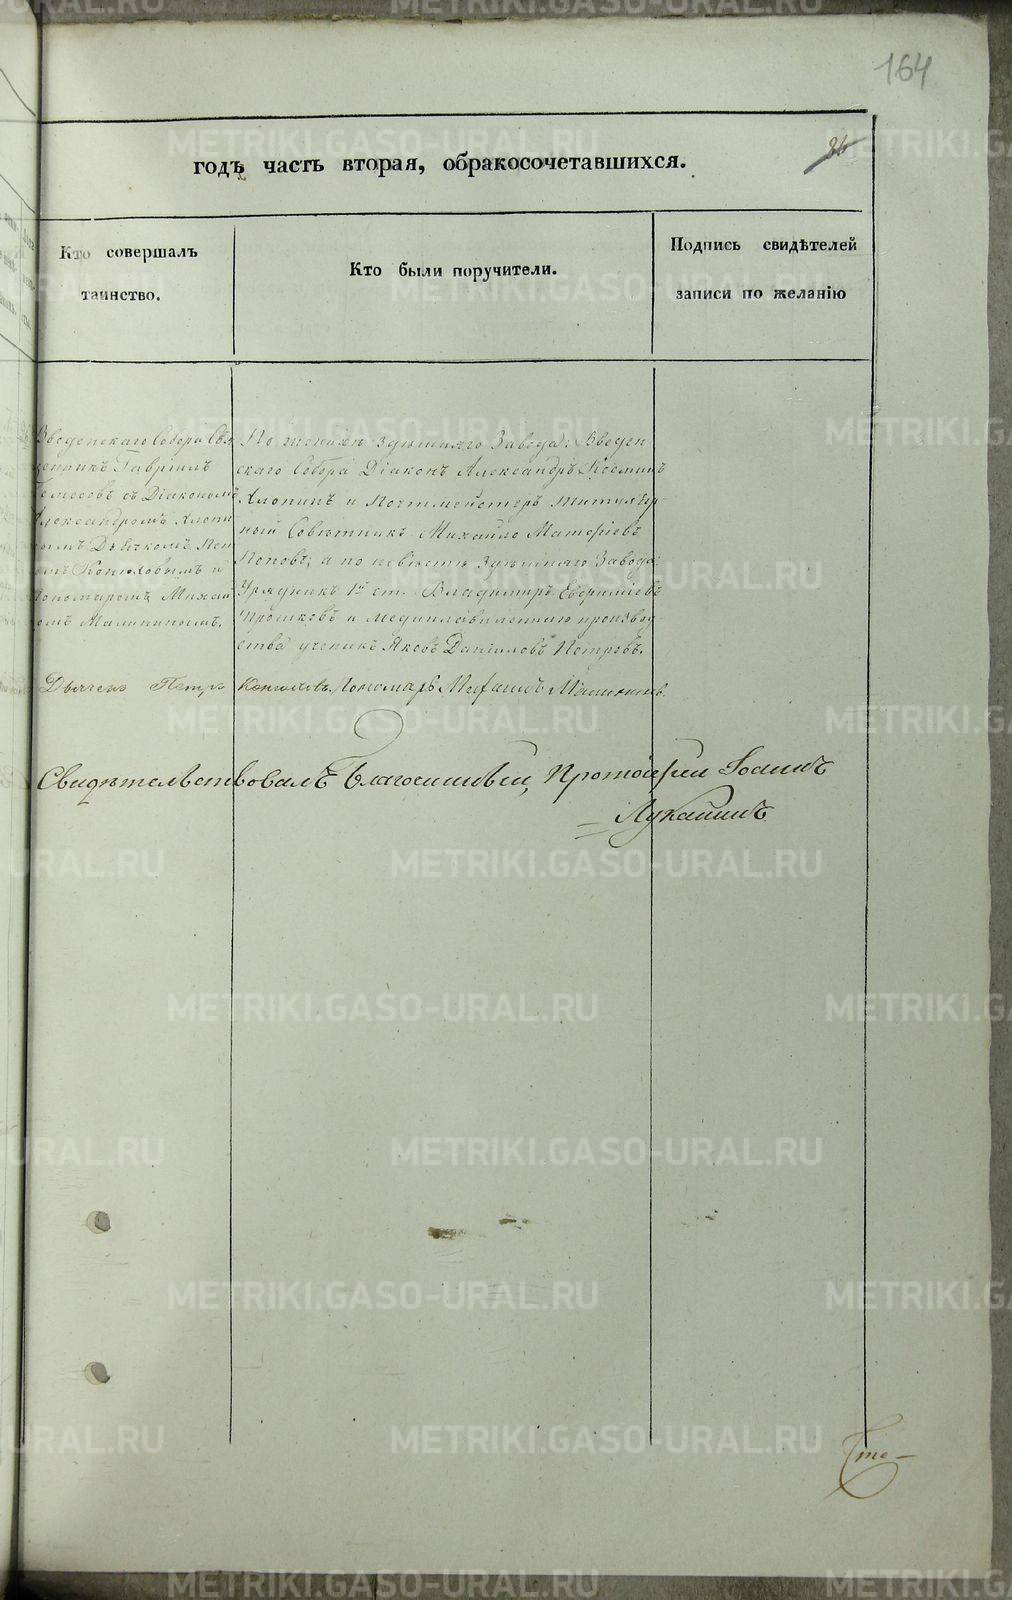 164
86
годъ часть вторая, обракосочетавшихся.
Кто совершалъ
таинство.
Кто были поручители.
Подпись свидѣтелей
записи по желанію
Введенскаго Собора Свя
щенникъ Гавріилъ
съ Діакономъ
Александромъ Хлопи
нымъ Дьячкомъ Пет
ромъ Конюховымъ и
Пономаремъ Михаи
ломъ Малининымъ.
По женихѣ здѣшняго Завода: Введен
скаго Собора Діаконъ Александръ Козминъ
Хлопинъ и Почтмейстеръ Титуляр
ный Совѣтникъ Михайло Матѳіевъ
Поповъ; а по невѣстѣ Здѣшняго Завода:
Урядникъ 1й ст. Владимиръ
и медиплавиленнаго производ
ства ученикъ Яковъ Даніиловъ Петровъ.
Дьячекъ Петръ Конюховъ. Пономарь Михаилъ Малининъ.
Свидѣтельствовалъ Благочинный, Протоіерей Іоаннъ
Лукаинъ
METRIKI.GASO-URAL.RU